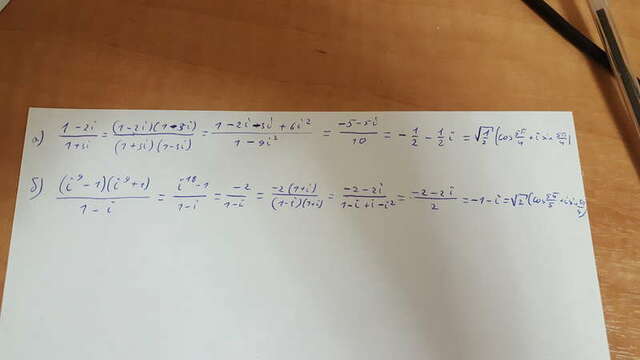 а) (1-2i)/(1+3i) = ((1-2i)(1-3i))/((1+3i)(1-3i)) = (1-2i-3i+6i²)/(1-9i²) = (-5-5i)/10 = -1/2 - 1/2 i = √(1/2) (cos 5π/4 + i sin 5π/4)
б) ((i⁹-1)(i⁹+1))/(1-i) = (i¹⁸-1)/(1-i) = -2/(1-i) = (-2(1+i))/((1-i)(1+i)) = (-2-2i)/(1-i+i-i²) = (-2-2i)/2 = -1-i = √2 (cos 5π/5 + i sin 5π/4)